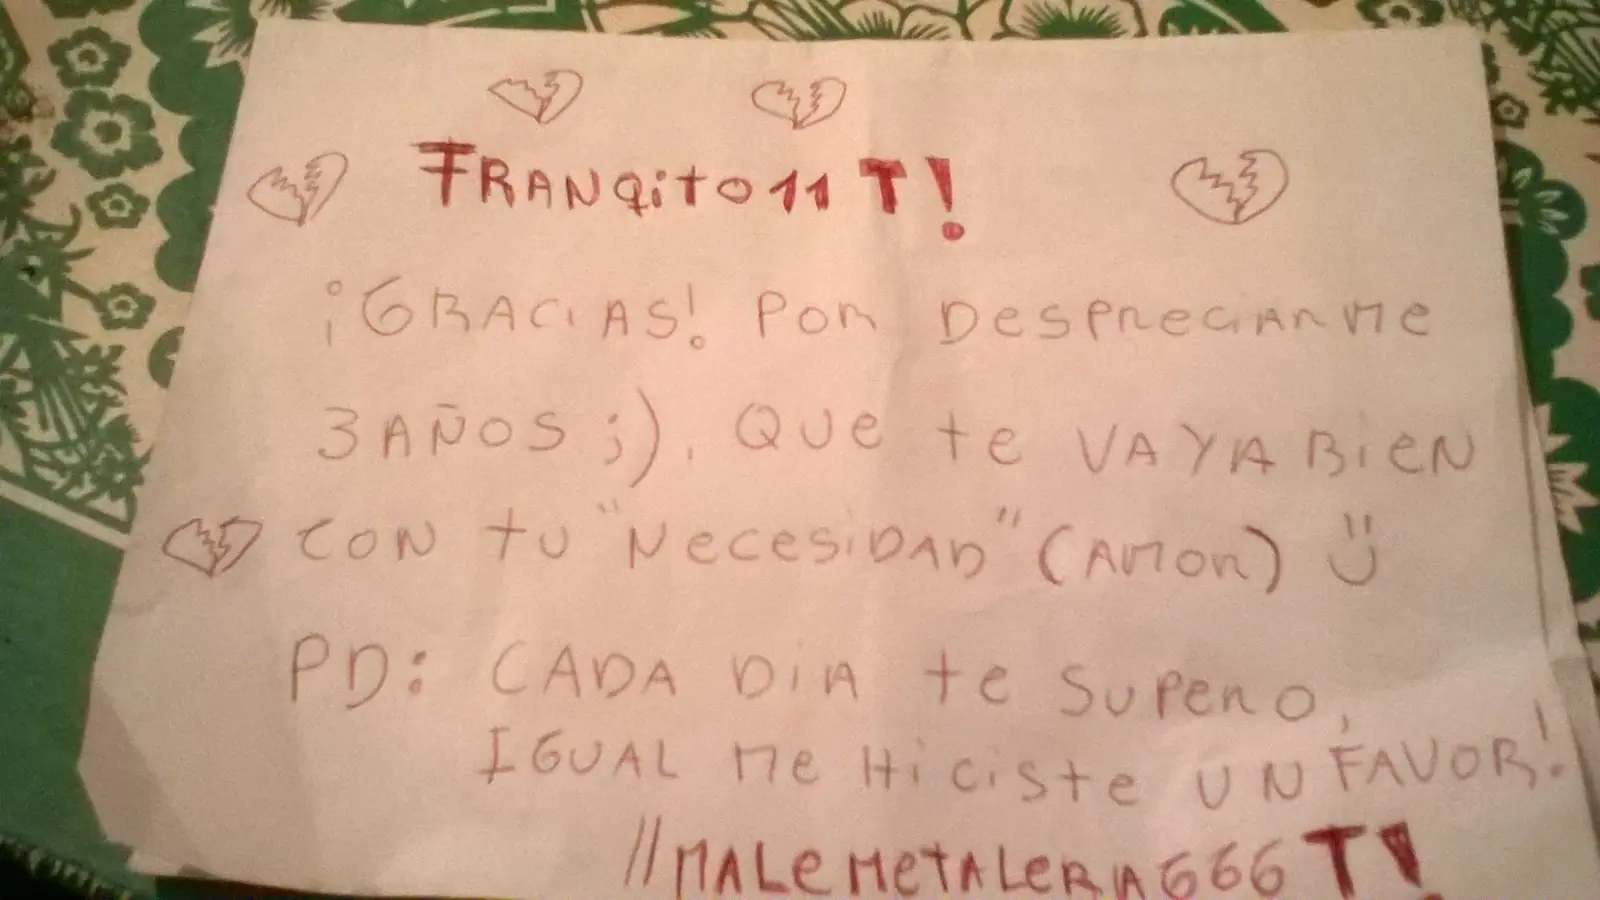 FRANQitO11 T!
¡GRACIAS! POR DESPRECIARME
3 AÑOS ;). QUE te VAYA BIEN
CON tU "NeCESiDAD" (AMOR) :)
PD: CADA DÍA te SUPERO,
IGUAL Me HiCiSte UN FAVOR!
//MALeMetALeRA666 T!